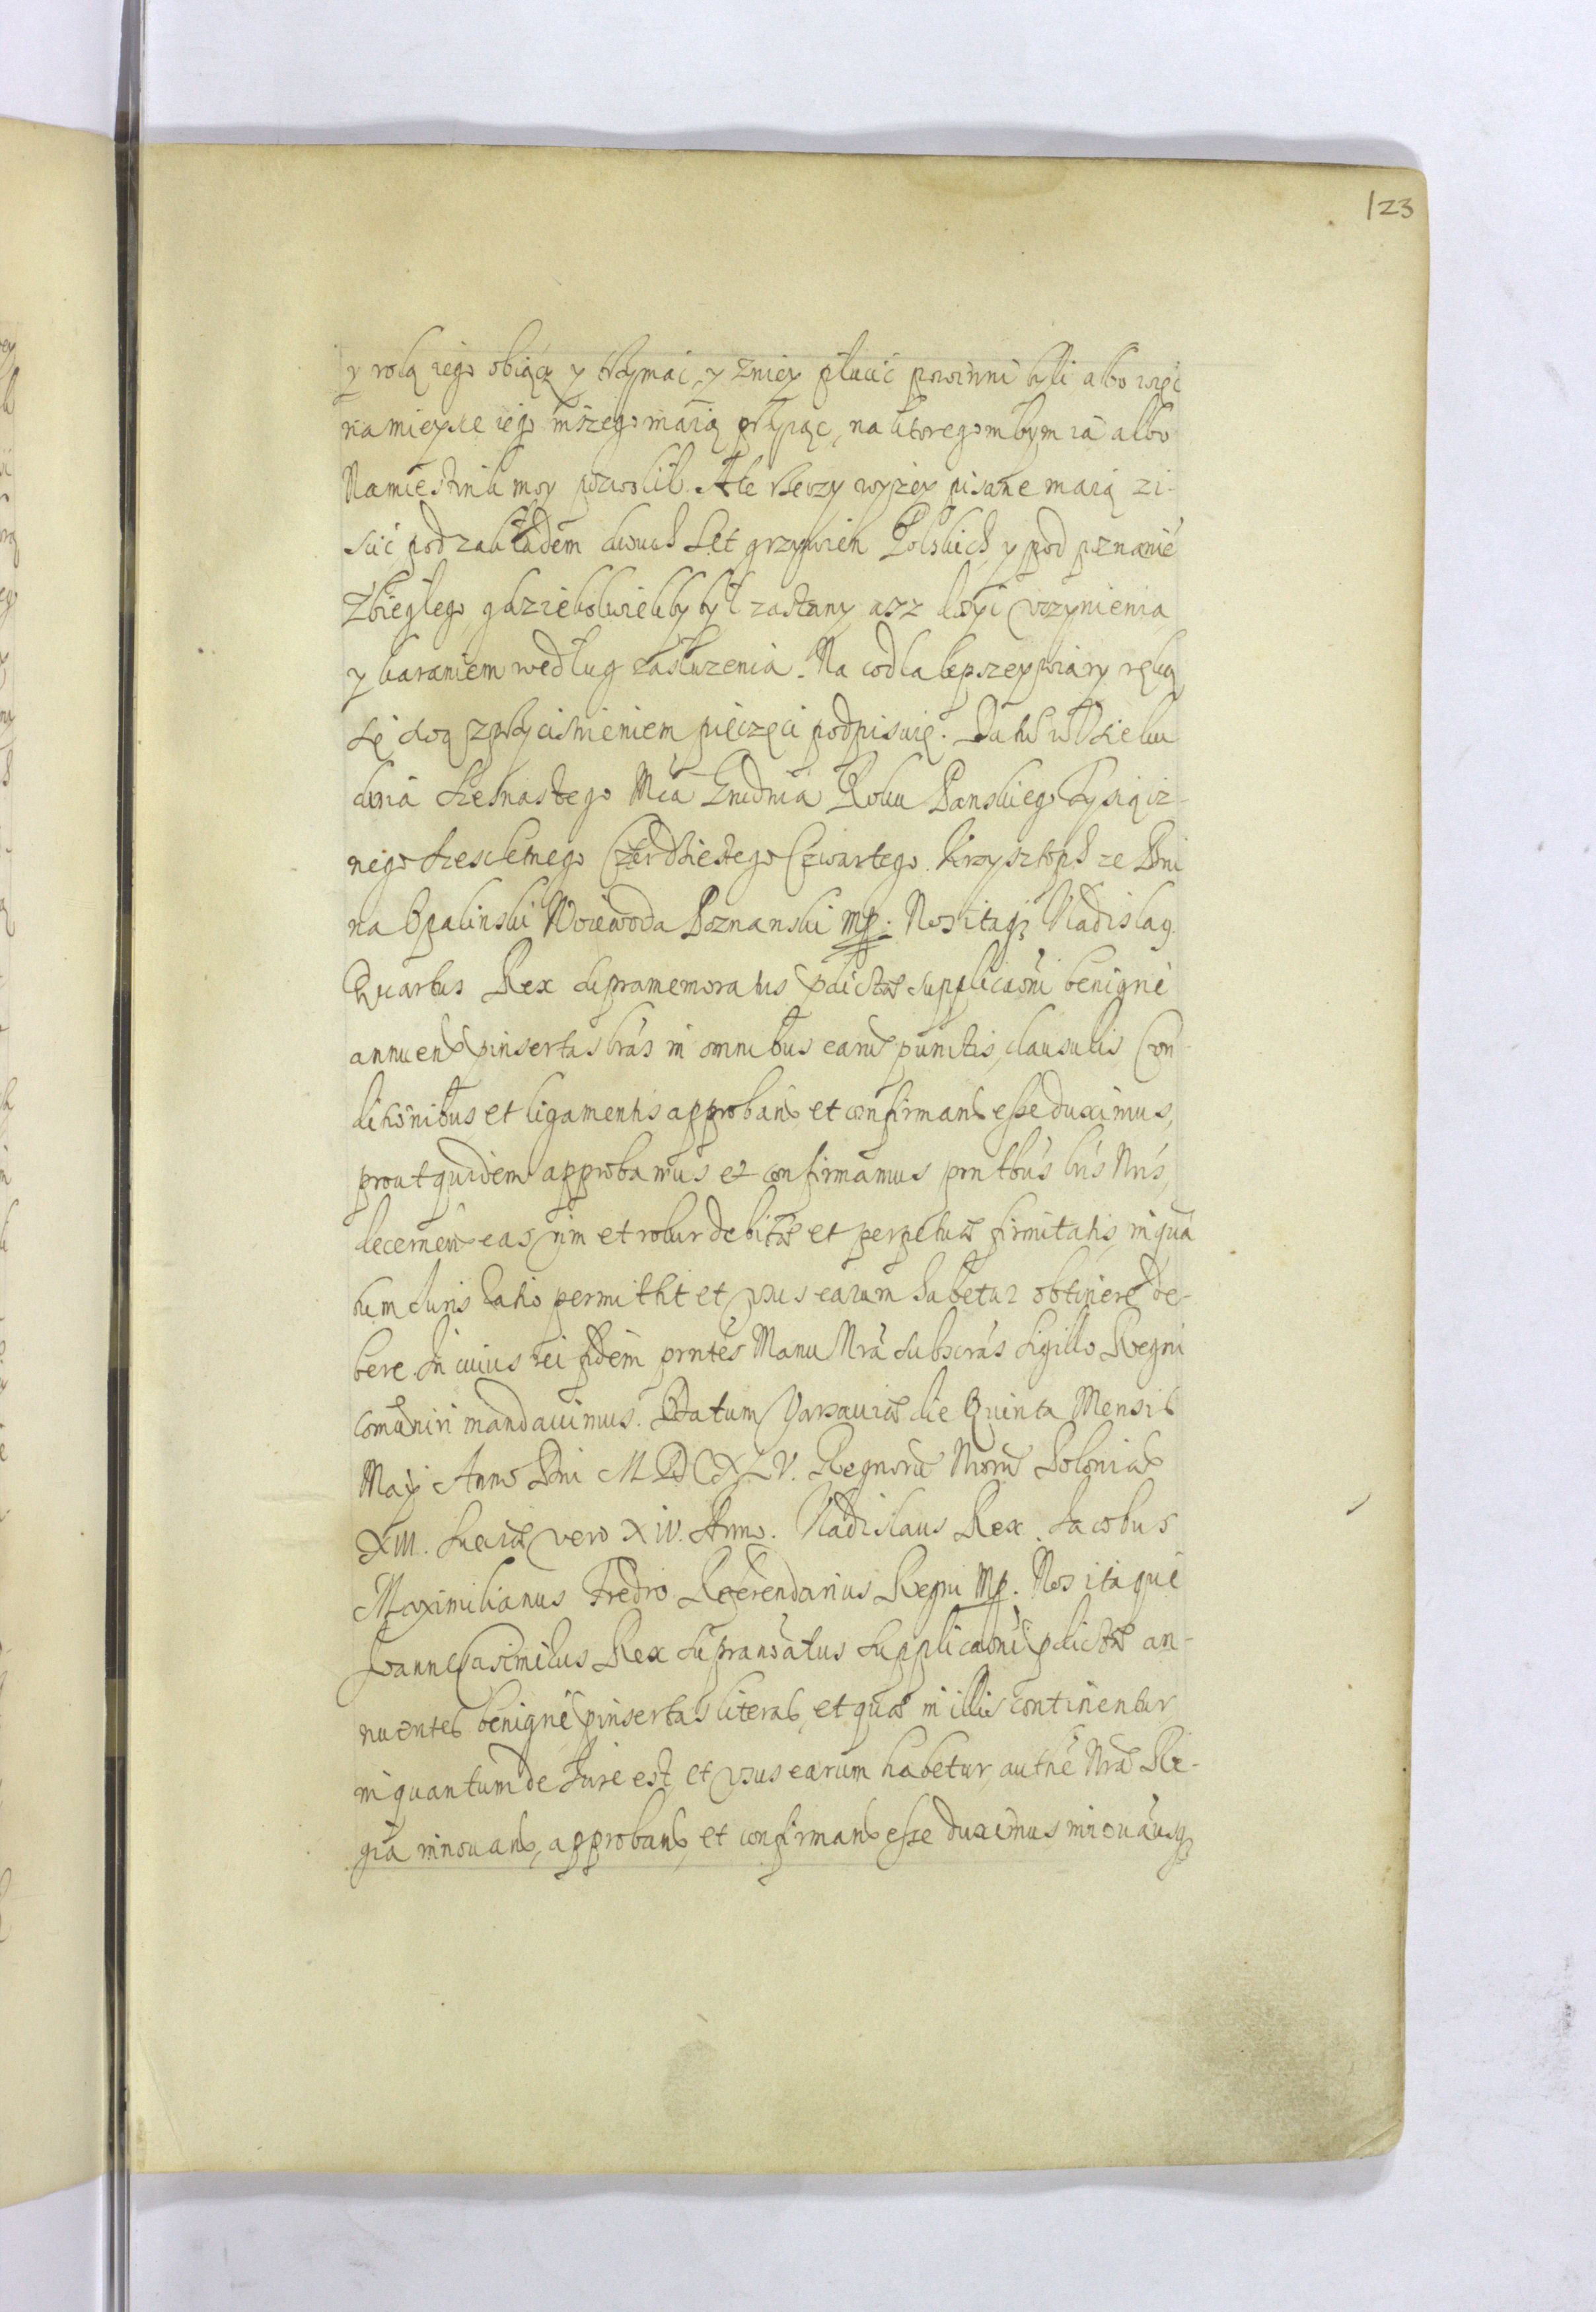 123
y rolą iego obiąć y trzymać, y zniey płacić powinni byli albo więc
na mieysce iego inszego maią przyiąc, na ktoregombym ia albo
Namiestnik moy pozwolił. Ate rzeczy wyżey pisane maią zi-
scić pod zakładem dwuch set grzywien Polskich, y pod poznanie
zbiegłego gdziekolwiekby był zastany asz dosyć vczynienia
y karaniem według zasłuzenia. Na co dla lepszey wiary ręką
się swą z przyciśnieniem pieczęci podpisuię. Datt w
dnia szesnastego Mca Grudnia Roku Panskiego Tysiącz-
nego szescsetnego Czterdziestego Czwartego. Krzysztoph ze Bni
na Opalinski Woiewoda Poznanski mp. Nos itaq Vladislaq
Quartus Rex supramemoratus pdictæ supplicaōni benigne
annuen pinsertas lrás in omnibus earū punctis, clausulis, Con
ditionibus et ligamentis approban et confirman esse duximus,
prout quidem approbamus et confirmamus pntbús lrís Nrís,
decernen eas vim et robur debitæ et perpetuæ firmitatis, inquan
tum Iuris ratio permittit et vsus earum habetur obtinere de-
bere. In cuius rei fidem prntés Manu Nrá subscrás Sigillo Regni
comuniri mandauimus. Datum Varsauiæ die Quinta Mensis
Maÿ Anno Dni MDCXLV. Regnorū Nrorū Poloniæ
XIII. Sueciæ vero XIV. Anno. Vladislaus Rex. Iacobus
Maximilianus Fredro Referendarius Regni mp. Nos itaque
Joannes Casimirus Rex supranoatus supplicaōni pdictæ an-
nuentes benigne pinsertas literas, et quæ in illis continentur
inquantum de Iure est, et vsus earum habetur, authe Nrā Re-
gia innouan, approban, et confirman esse duximus innouamusq